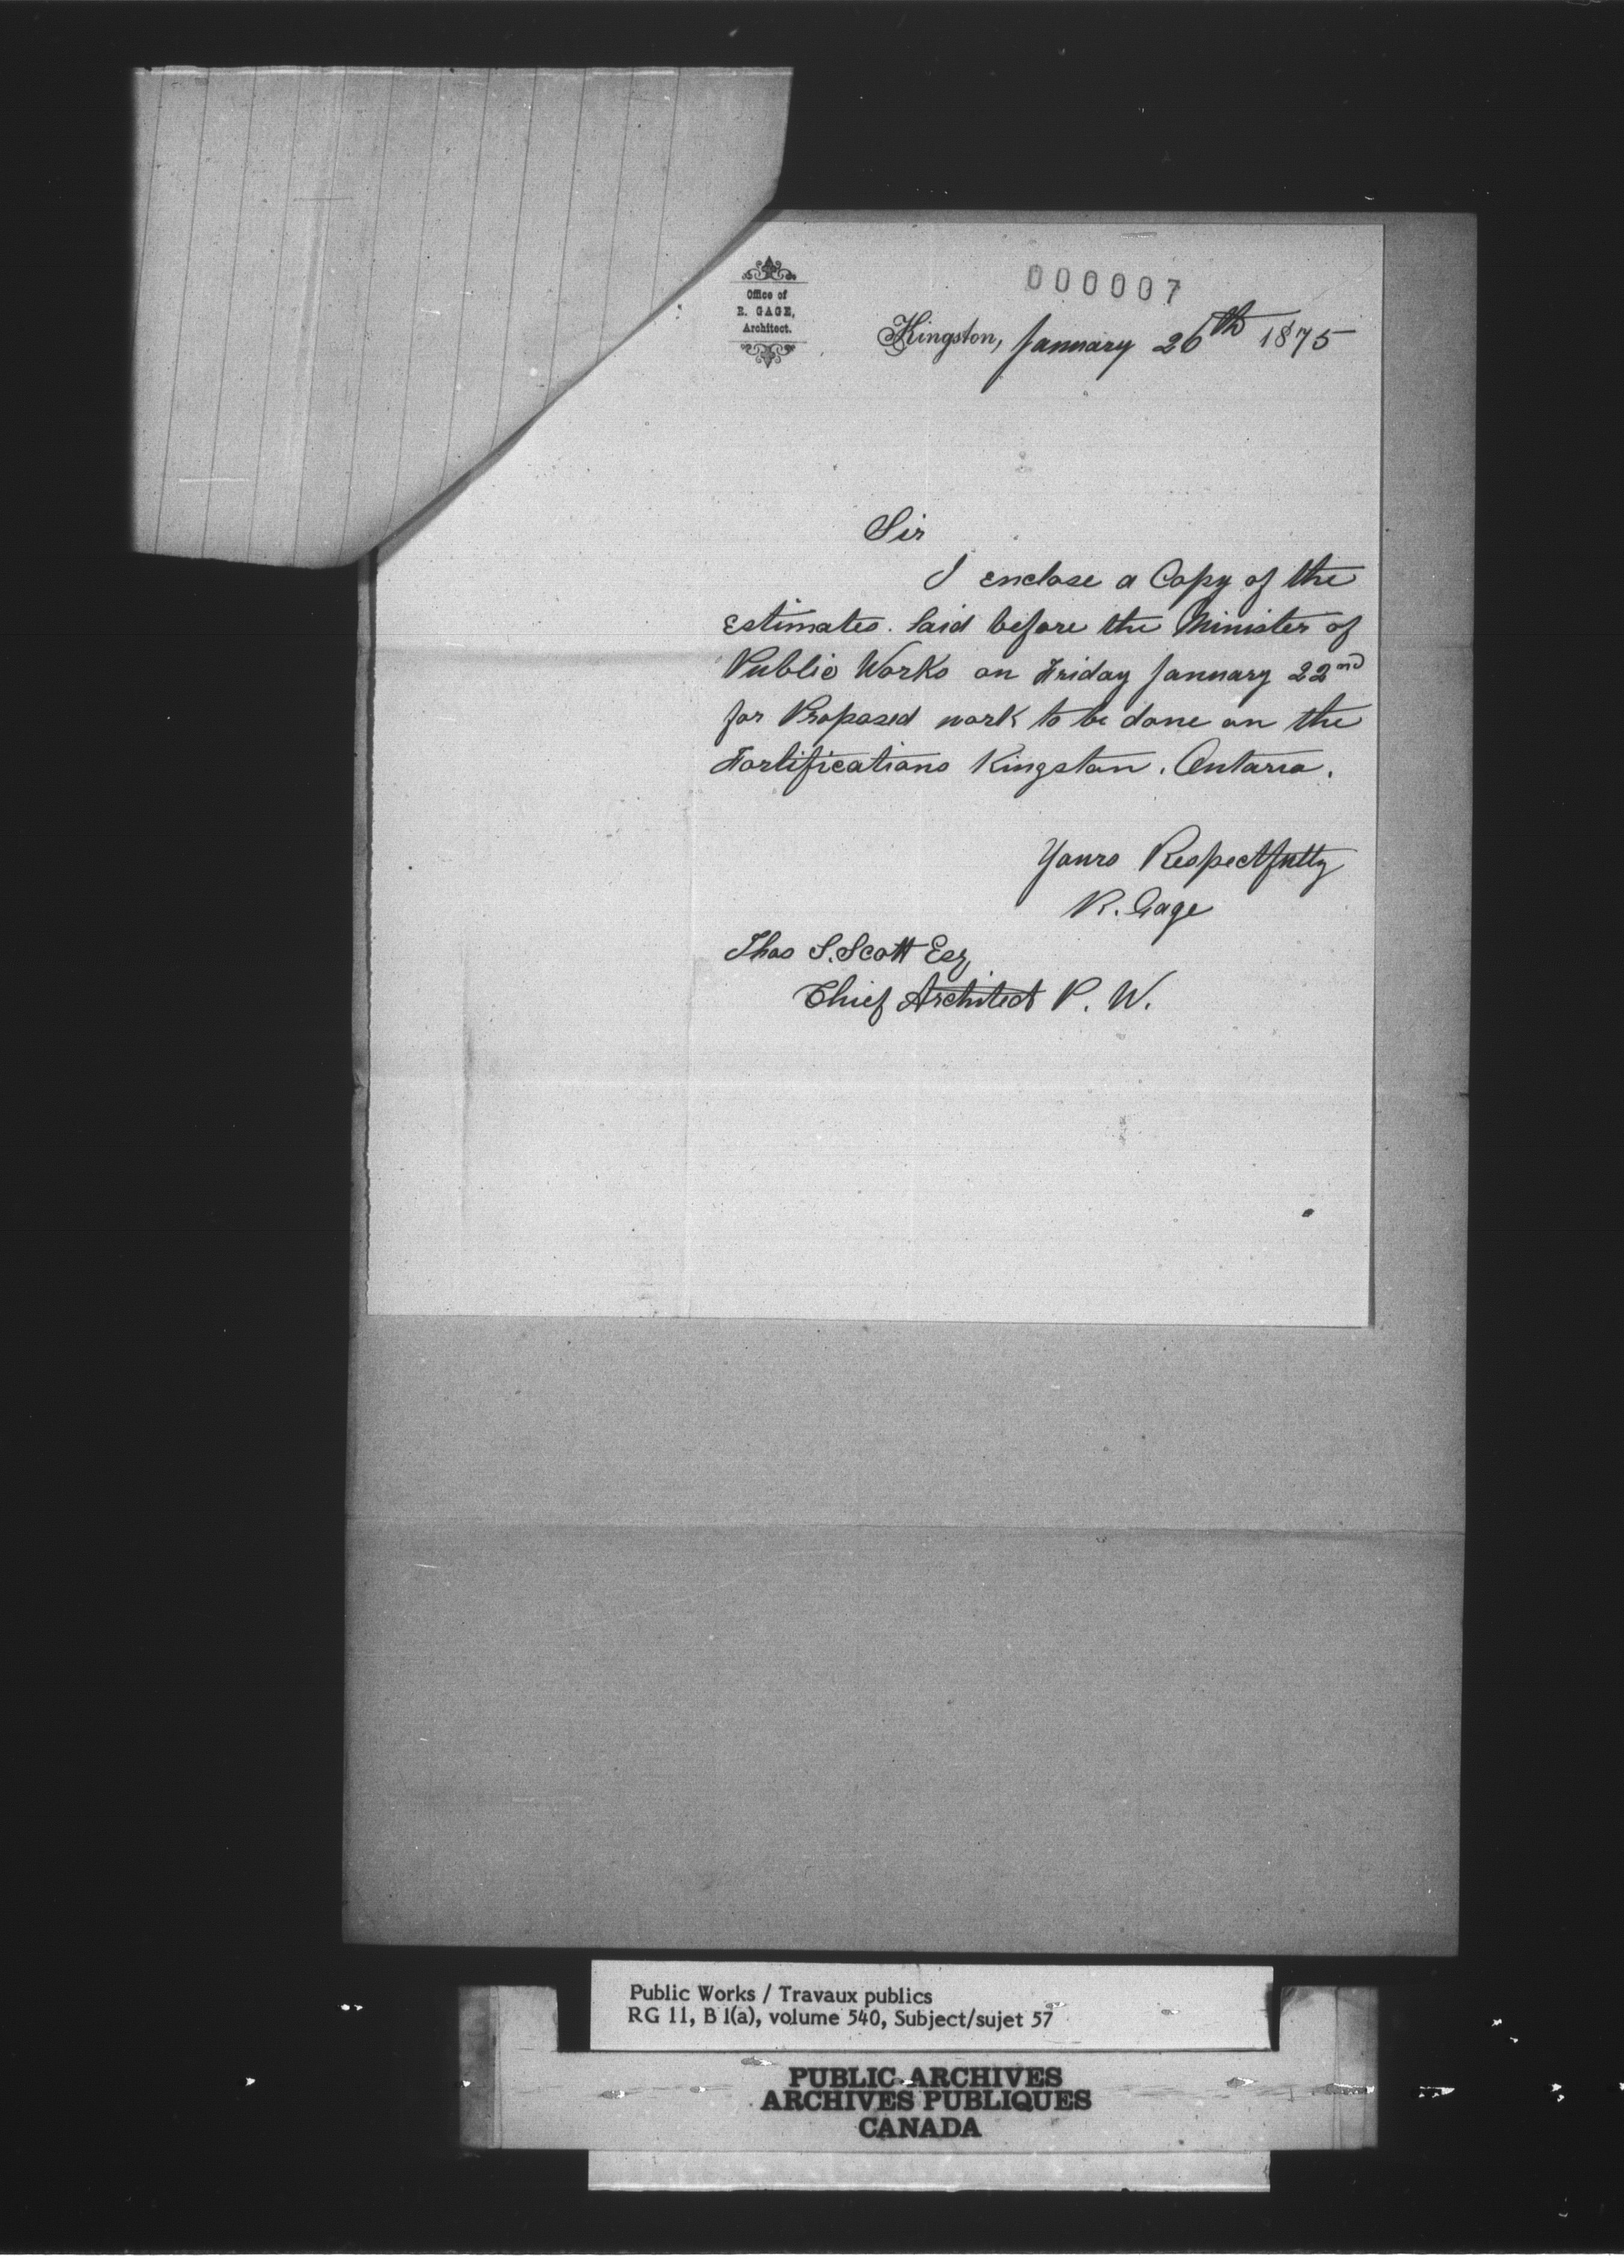 Office of
R. GAGE,
Architect.
000007
Kingston, January 26th 1875
Sir
I enclose a Copy of the
Estimates. laid before the Minister of
Public Works on Friday January 22nd
for Proposed work to be done on the
Fortifications Kingston. Ontario.
Yours Respectfully
R. Gage
Thos S. Scott Esq
Chief Architect P. W.
Public Works / Travaux publics
RG 11, B 1(a), volume 540, Subject/sujet 57
PUBLIC ARCHIVES
ARCHIVES PUBLIQUES
CANADA